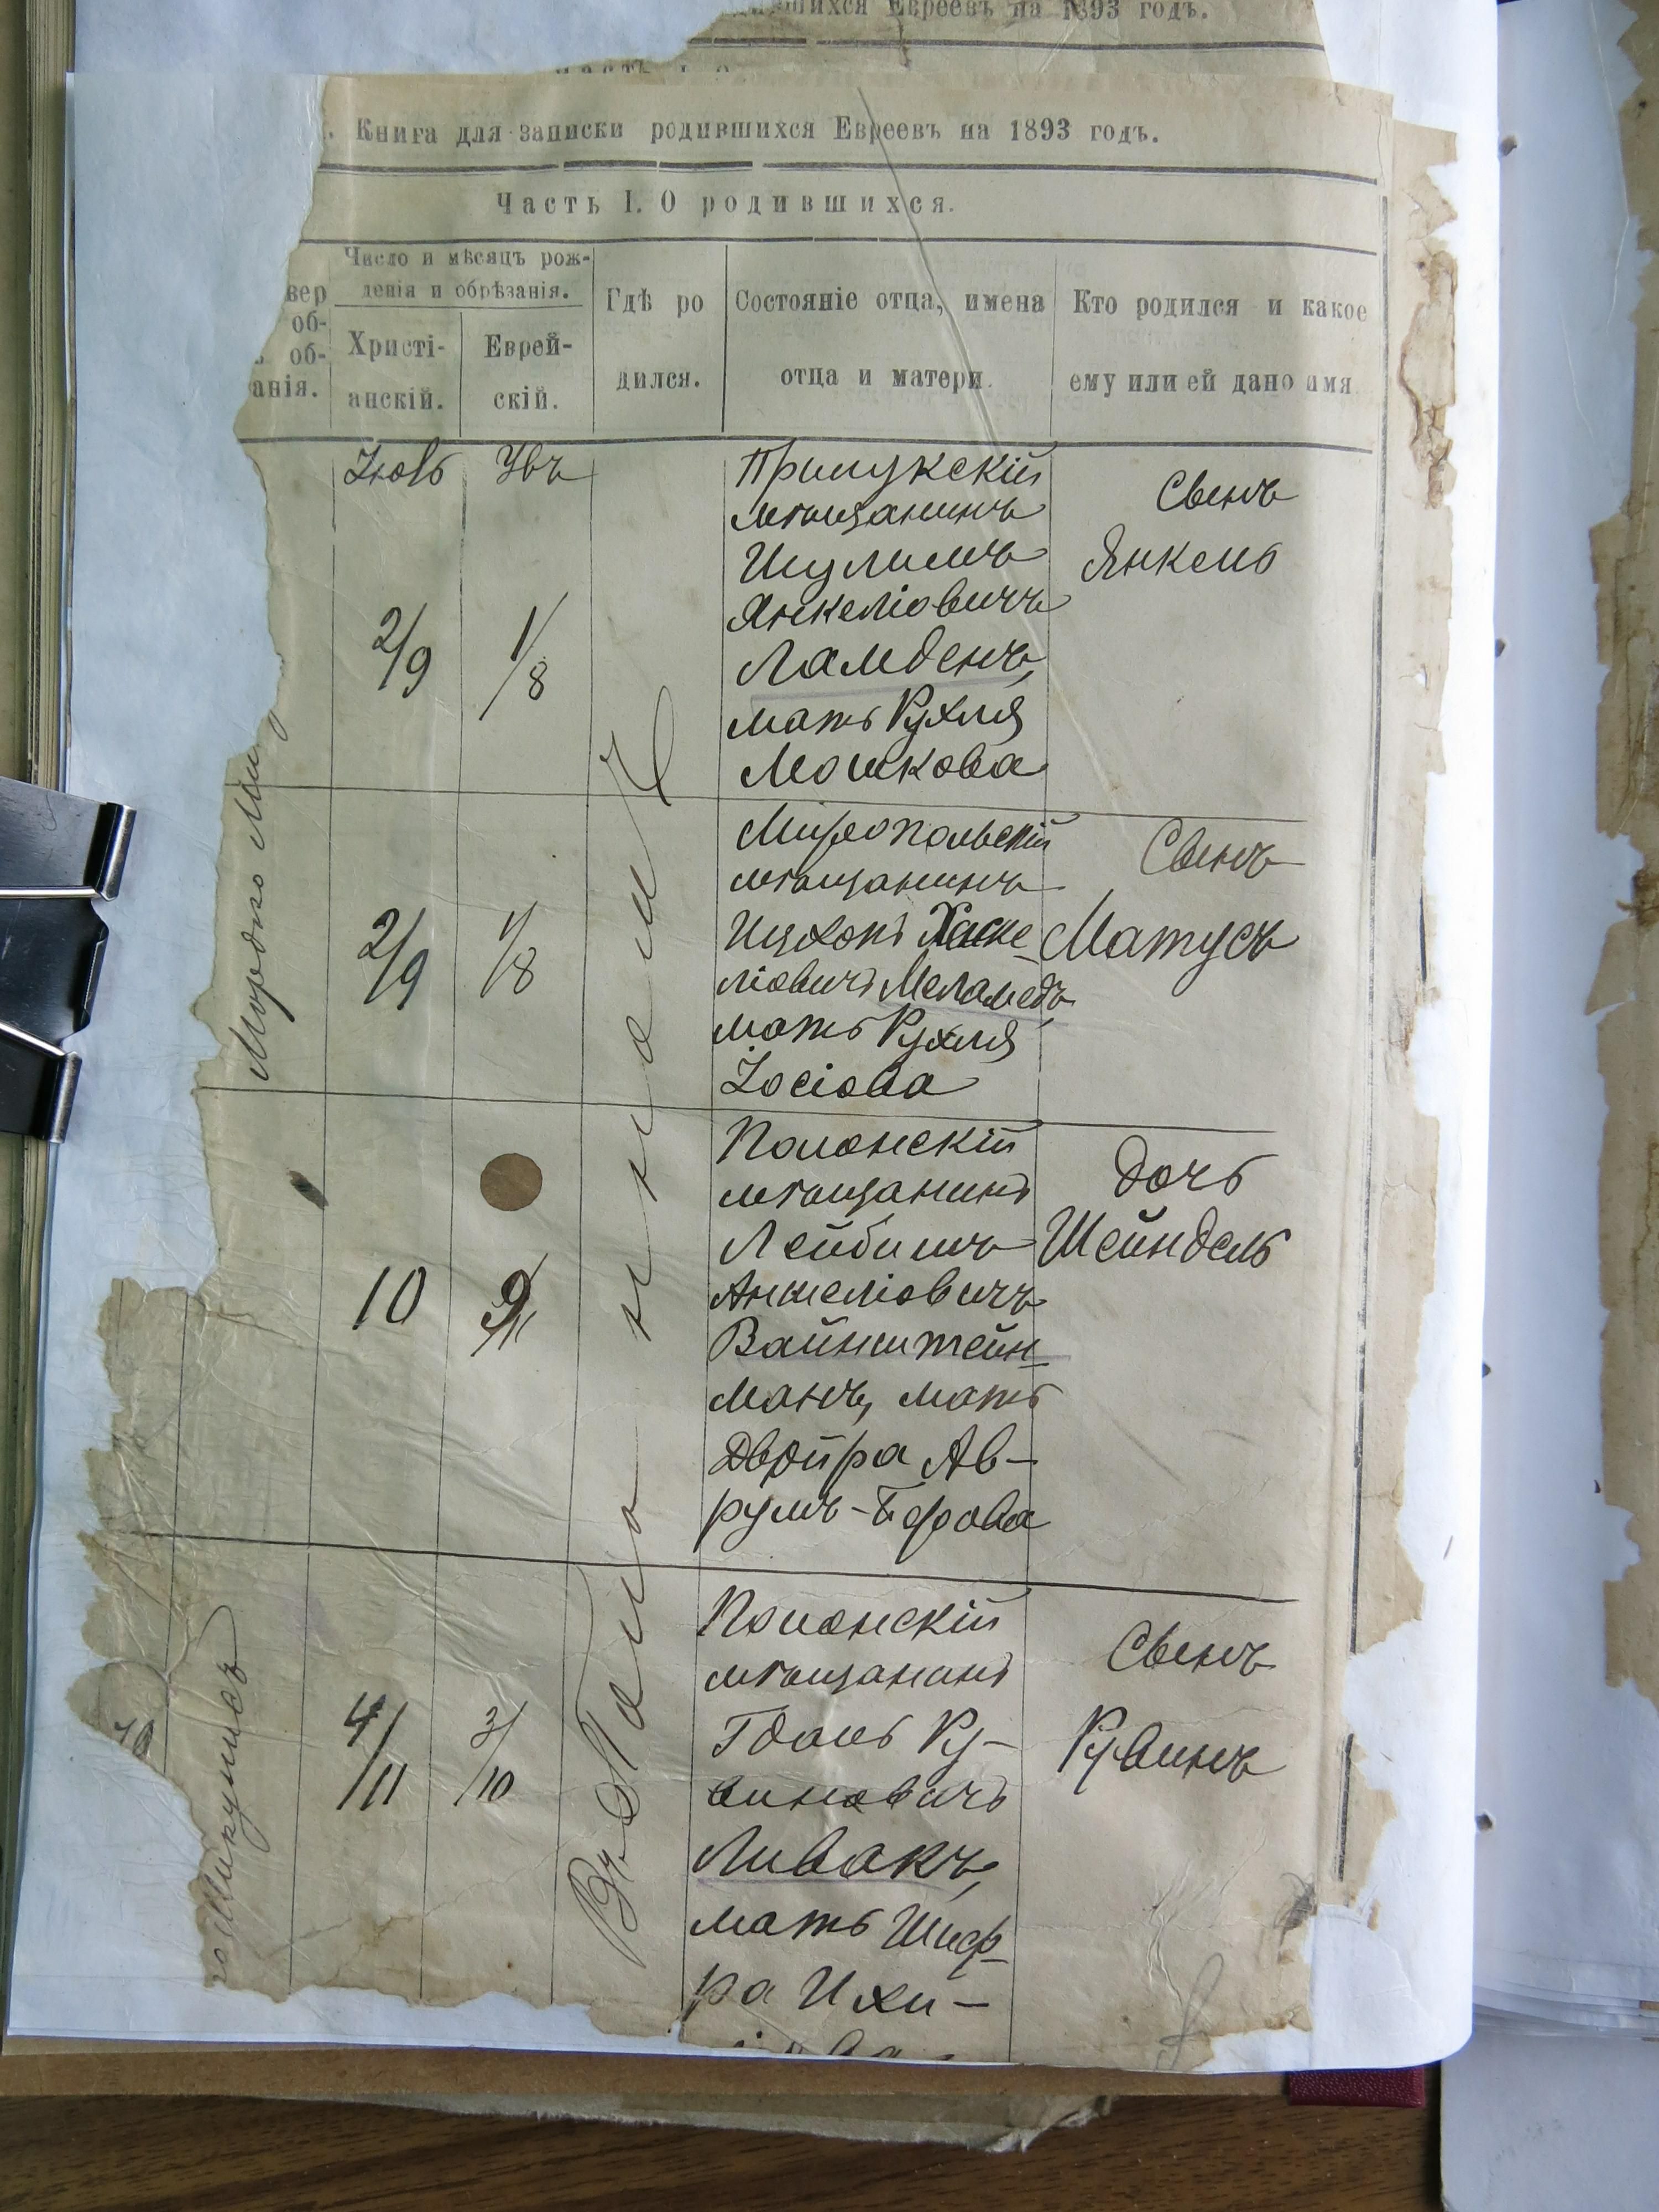 шихся Евреевъ на 1893 годъ.
Книга для записки родившихся Евреевъ на 1893 годъ.
Часть I. О родившихся.
вер
об-
об-
анія.
Число и мѣсяцъ рож-
денія и обрѣзанія.
Христі-
анскій.
Еврей-
скій.
Гдѣ ро
дился.
Состояніе отца, имена
отца и матери.
Кто родился и какое
ему или ей дано имя
Мордко
Іюль
2/9
1/8
мѣщанинъ
Шулимъ
Янкеліовичъ
Ламденъ,
мать Рухля
Мошкова
Сынъ
Янкель
2/9
1/8
Миропольскій
мѣщанинъ
Ицхокъ Хаске-
ліовичъ Меламедъ,
мать Рухля
Іосіова
Сынъ
Матусъ
10
9
Полонскій
мѣщанинъ
Лейбишъ
Аншеліовичъ
Вайнштейн-
манъ, мать
Двойра Ав-
румъ-Берова
Дочь
Шейндель
Въ
4/11
3/10
Полонскій
мѣщанинъ
Гдаль Ру-
виновичъ
Ливакъ,
мать Шиф-
ра Ихи-
Сынъ
Рувинъ